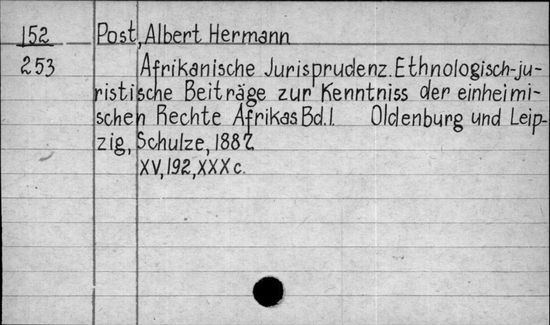 152 Post, Albert Hermann
253 Afrikanische Jurisprudenz. Ethnologisch-ju-
ristische Beiträge zur Kenntniss der einheimi-
schen Rechte Afrikas Bd. 1. Oldenburg und Leip-
zig, Schulze, 1887.
XV, 192, XXX c.